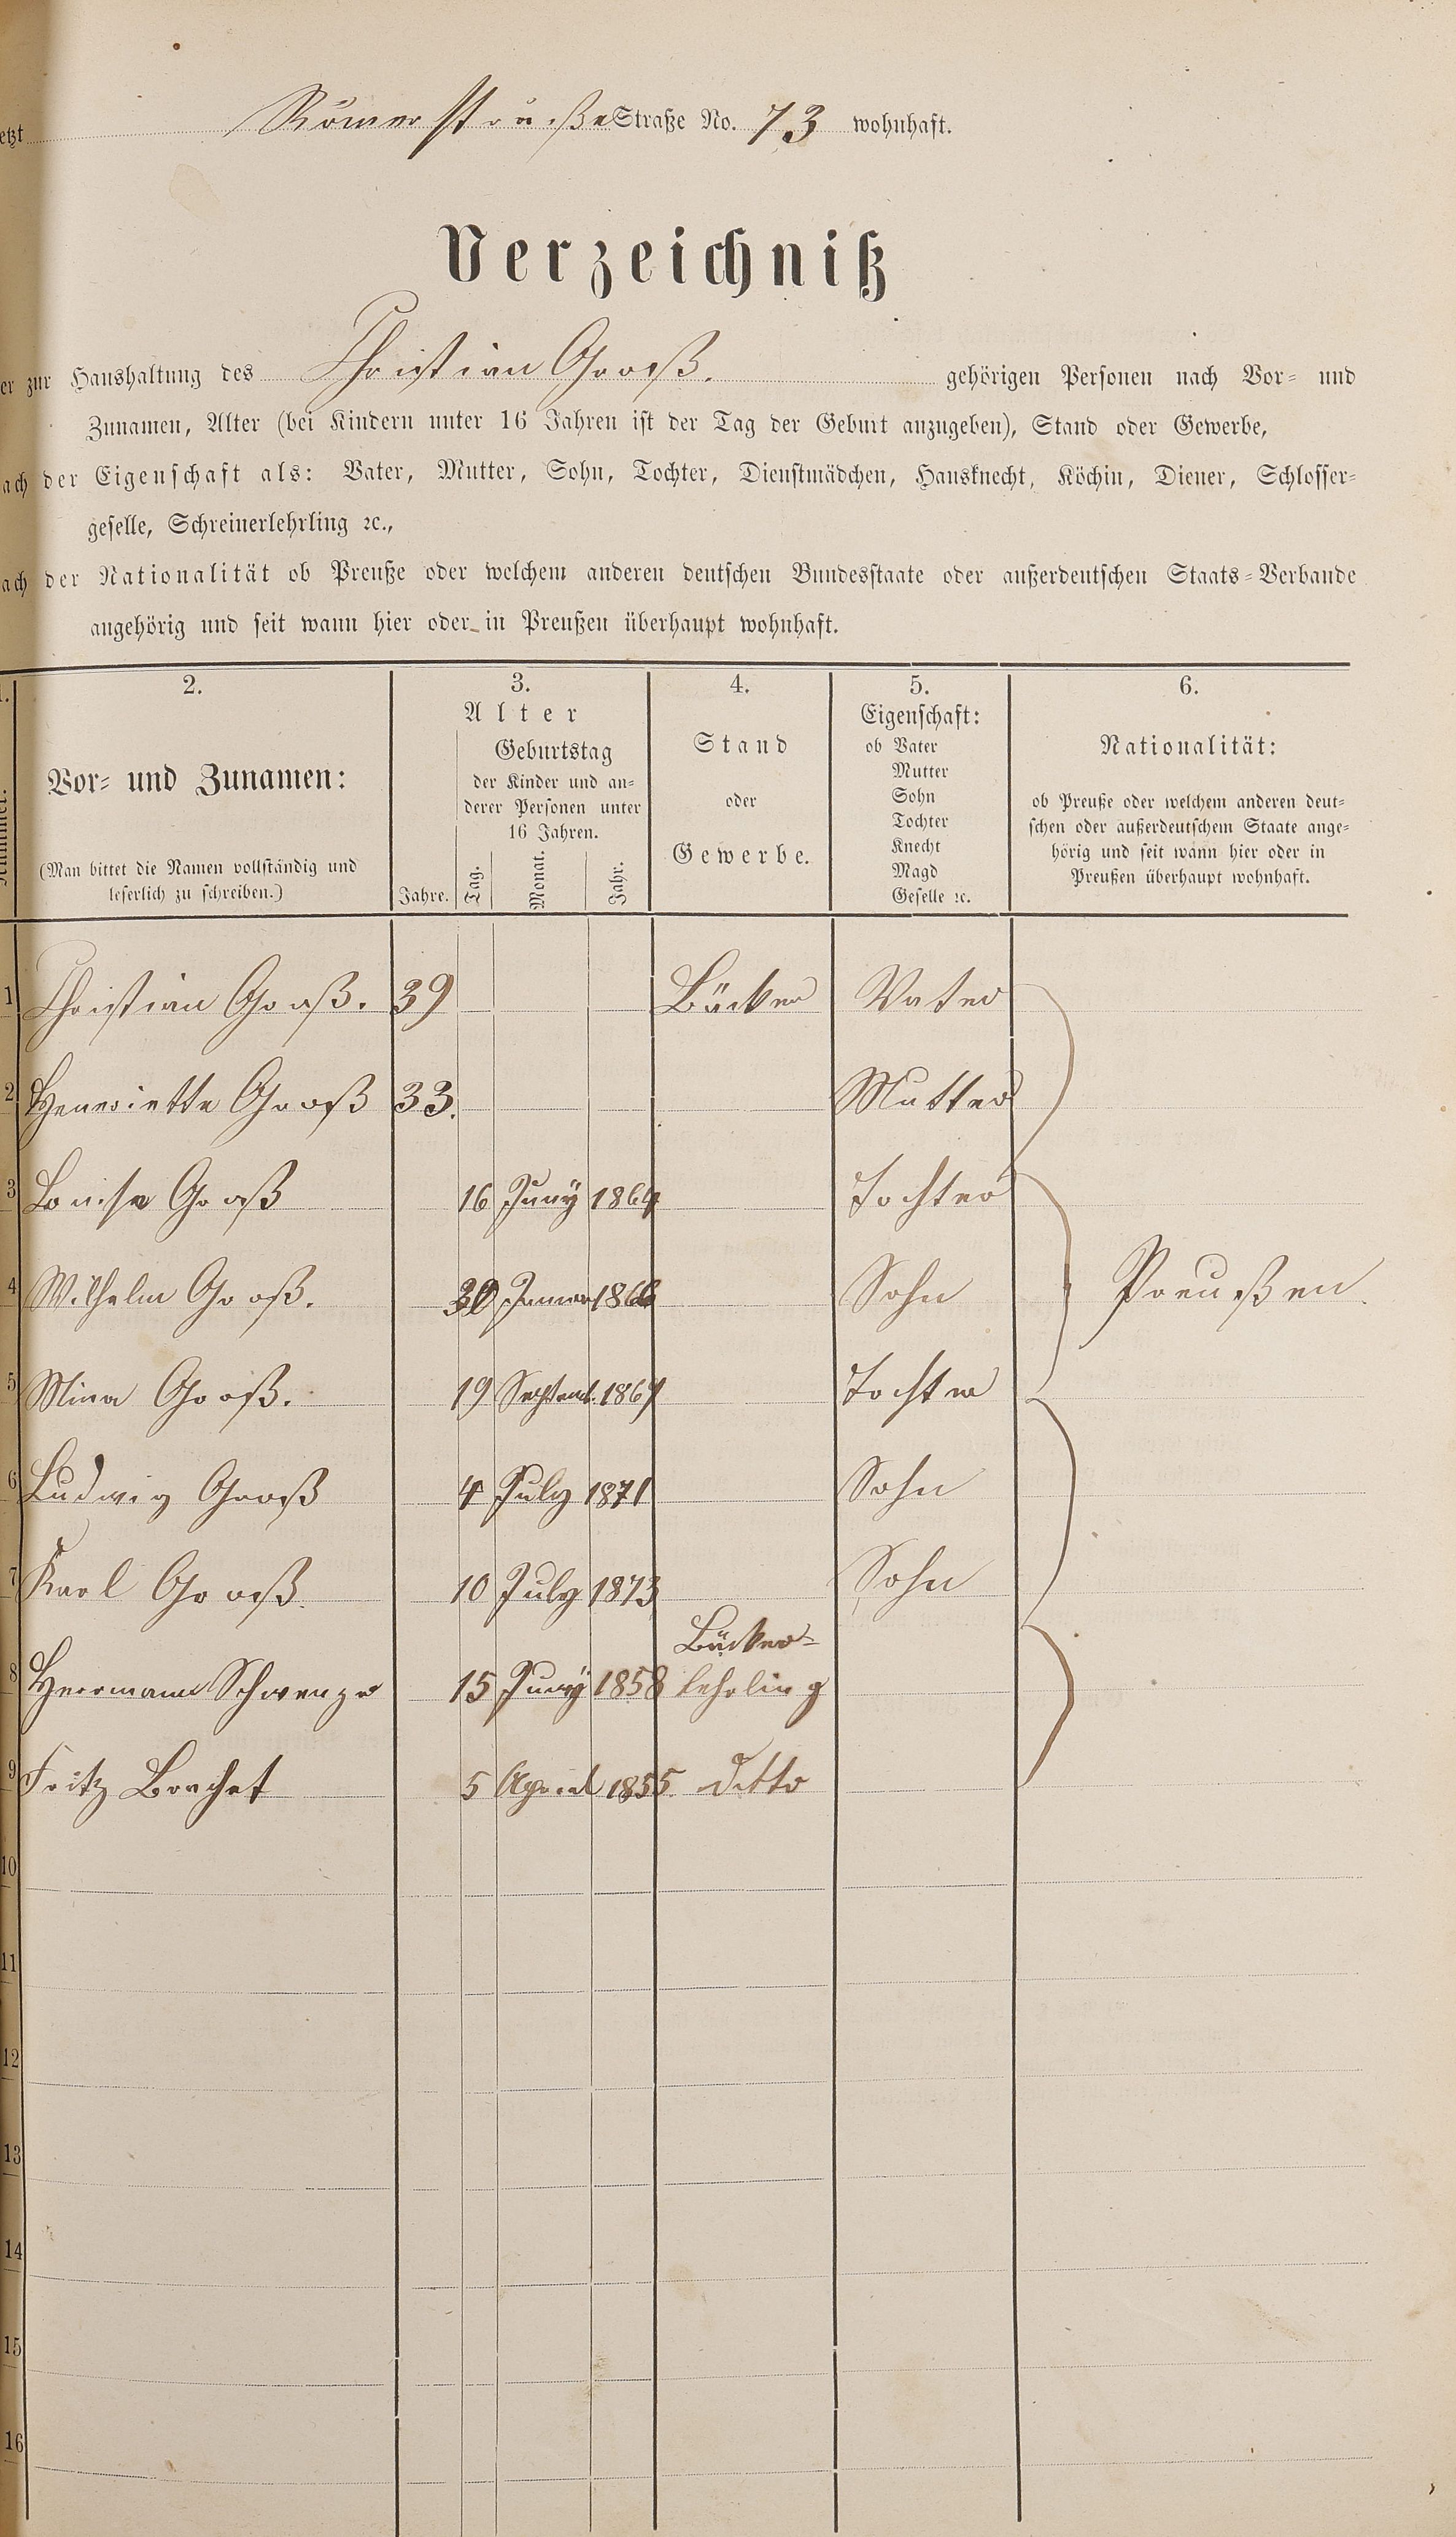 etzt Römerstraße Straße No. 73 wohnhaft.
Verzeichniß
er zur Haushaltung des Christian Groß. gehörigen Personen nach Vor- und
Zunamen, Alter (bei Kindern unter 16 Jahren ist der Tag der Geburt anzugeben), Stand oder Gewerbe,
ach der Eigenschaft als: Vater, Mutter, Sohn, Tochter, Dienstmädchen, Hausknecht, Köchin, Diener, Schlosser-
geselle, Schreinerlehrling ꝛc.,
ach der Nationalität ob Preuße oder welchem anderen deutschen Bundesstaate oder außerdeutschen Staats-Verbande
angehörig und seit wann hier oder in Preußen überhaupt wohnhaft.
1. 2. 3. 4. 5. 6.
Nummer.
Vor- und Zunamen:
(Man bittet die Namen vollständig und
leserlich zu schreiben.)
Alter
Jahre.
Geburtstag
der Kinder und an-
derer Personen unter
16 Jahren.
Tag. Monat. Jahr.
Stand
oder
Gewerbe.
Eigenschaft:
ob Vater
Mutter
Sohn
Tochter
Knecht
Magd
Geselle ꝛc.
Nationalität:
ob Preuße oder welchem anderen deut-
schen oder außerdeutschem Staate ange-
hörig und seit wann hier oder in
Preußen überhaupt wohnhaft.
1 Christian Groß. 39 Bäcker Vater
2 Henriette Groß 33. Mutter
3 Louise Groß 16 Juny 1864 Tochter
4 Wilhelm Groß. 30 Januar 1866 Sohn Preußen
5 Mina Groß. 19 Septemb. 1867 Tochter
6 Ludwig Groß 4 July 1871 Sohn
7 Karl Groß. 10 July 1873 Sohn
Bäcker-
8 Herrmann Schwenze 15 Juny 1858 lehrling
9 Fritz Borchet 5 April 1855. ditto
10
11
12
13
14
15
16